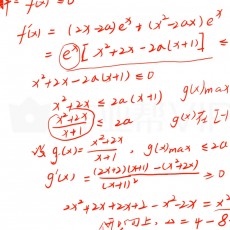 f'(x) = (2x-2a)e^x + (x²-2ax)e^x
= e^x [x²+2x-2a(x+1)] ≤
x²+2x-2a(x+1) ≤ 0
x²+2x ≤ 2a(x+1) g(x)max
(x²+2x)/(x+1) ≤ 2a g(x)在[-1
g(x) = (x²+2x)/(x+1), g(x)max ≤ 2a
g'(x) = ((2x+2)(x+1)-(x²+2x))/(x+1)² ≥ 0
2x²+2x+2x+2-x²-2x = x²
Δ = 4-8